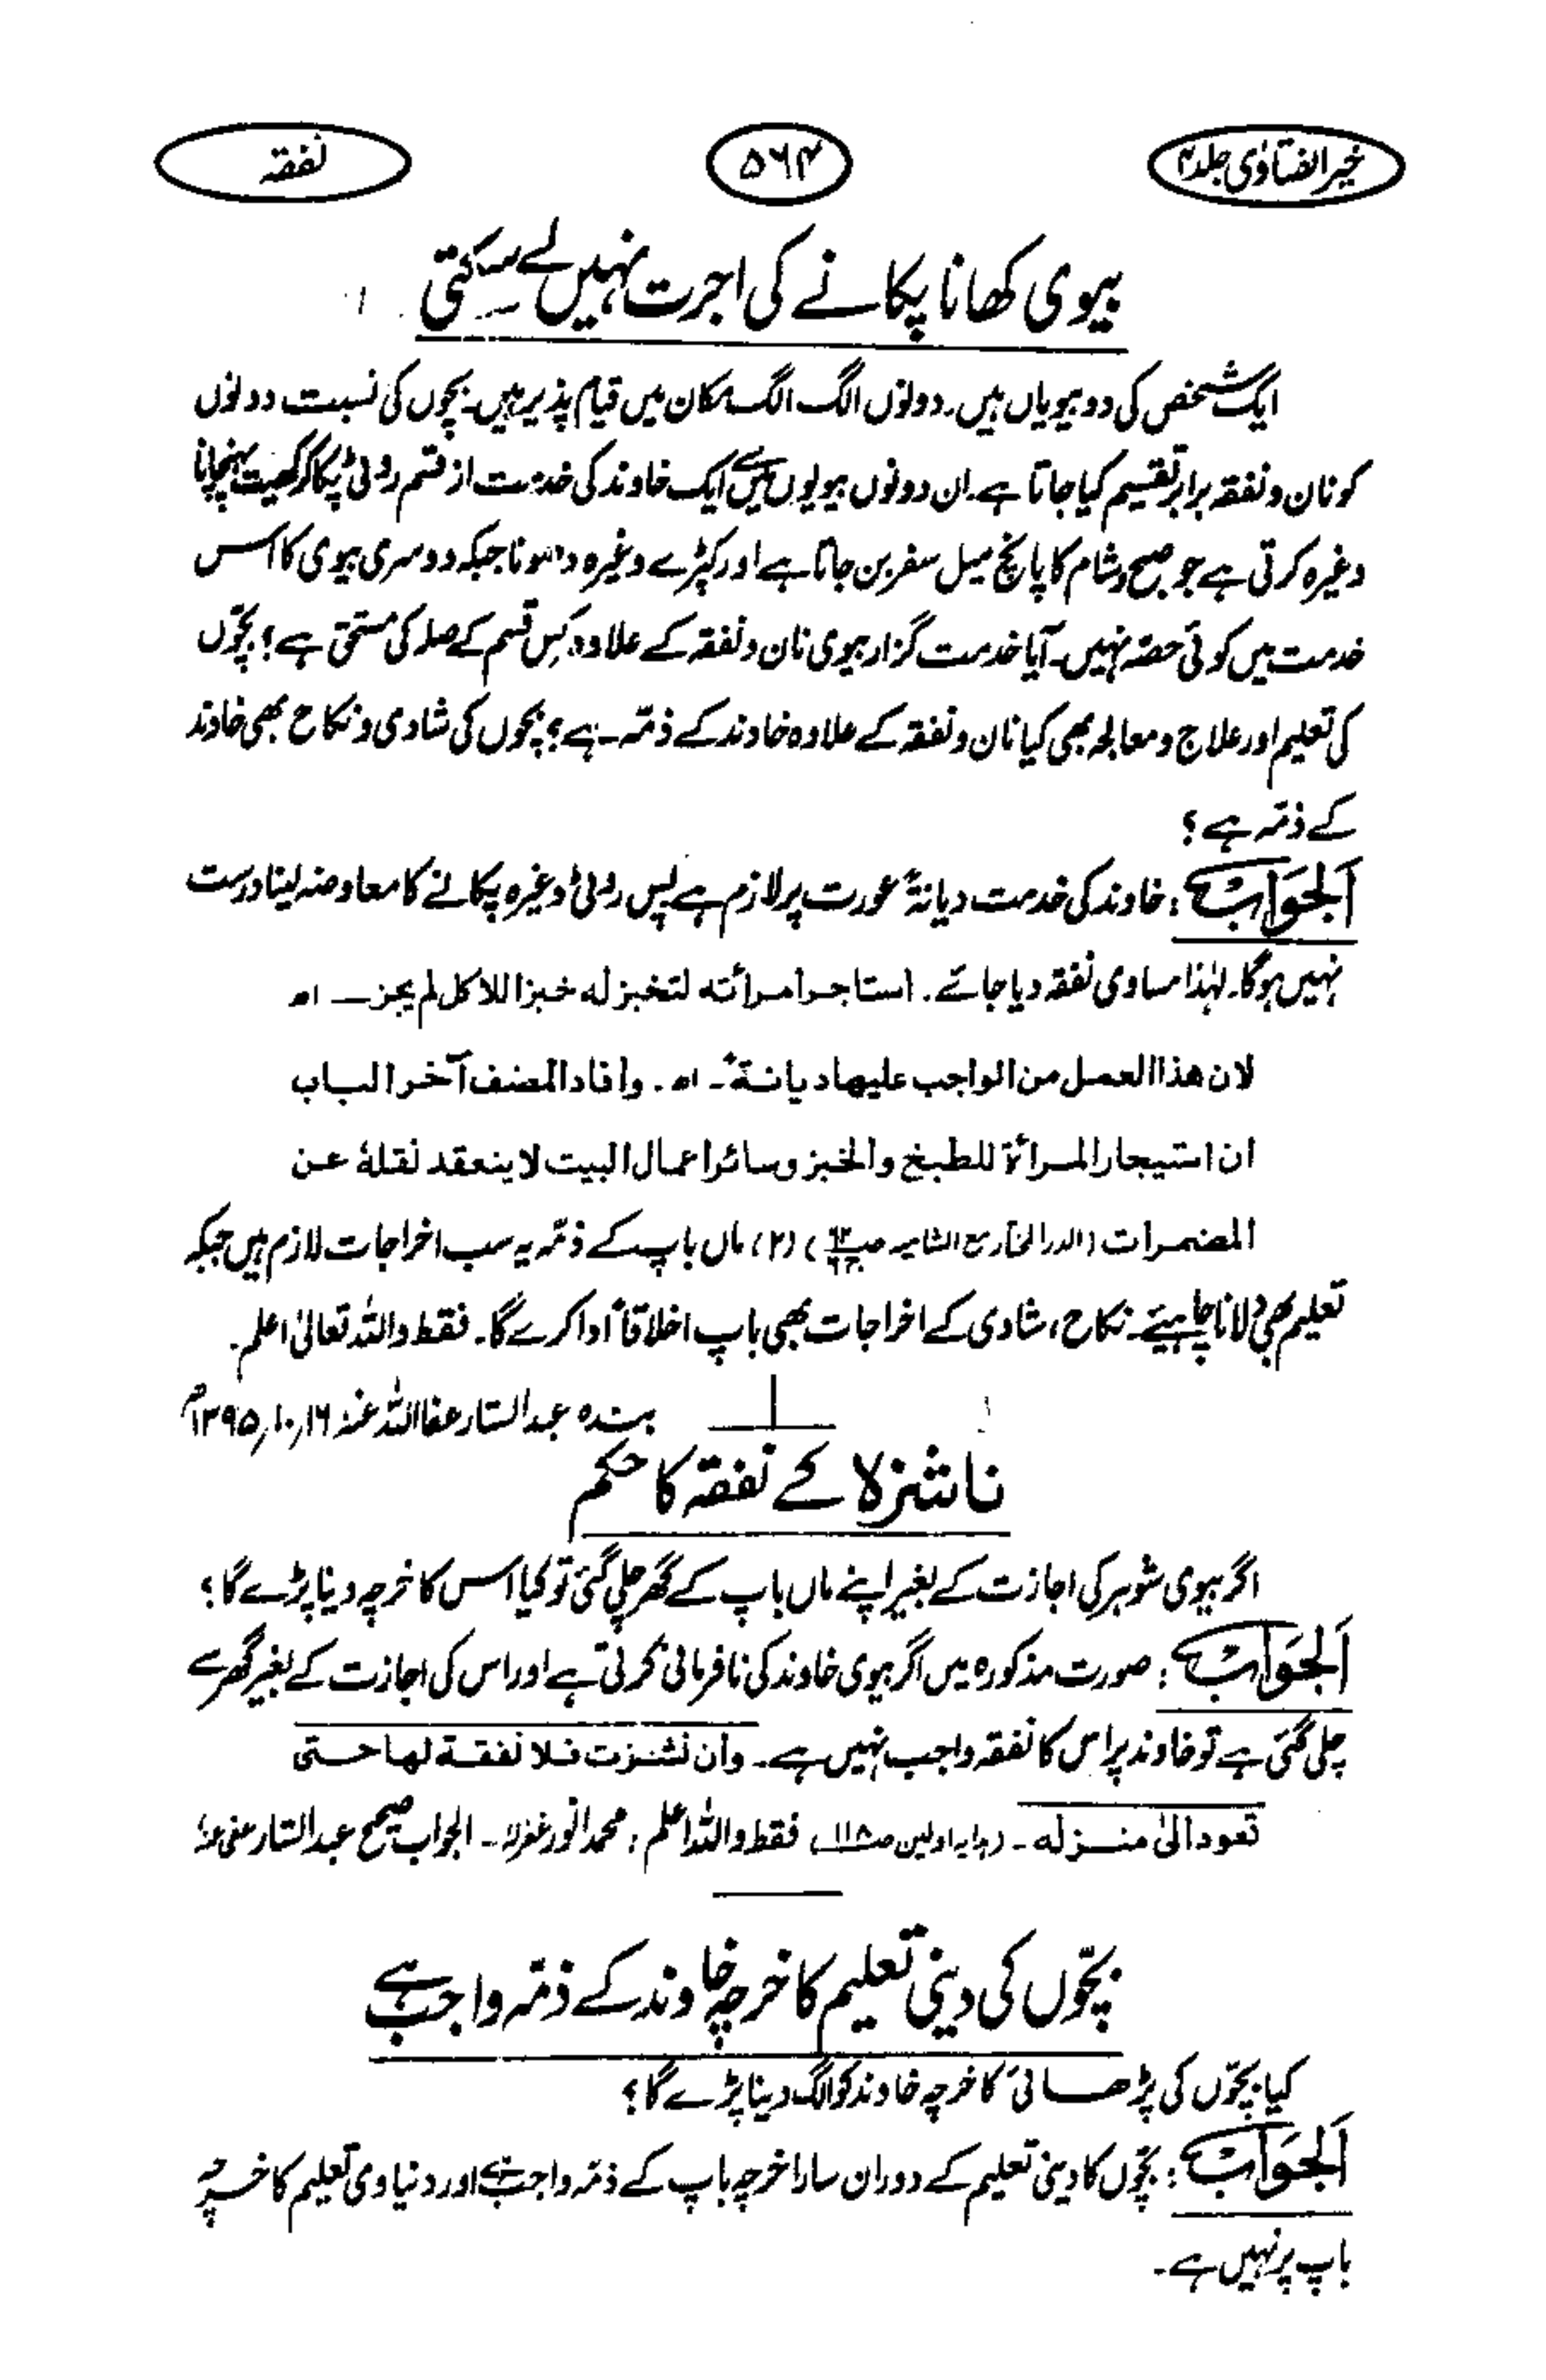 خیر الفتاوٰی جلد ۴
۵۶۴
نفقہ
بیوی کھانا پکانے کی اجرت نہیں لے سکتی
ایک شخص کی دو بیویاں ہیں۔ دونوں الگ الگ مکان میں قیام پذیر ہیں۔ بچوں کی نسبت دونوں
کو نان و نفقہ برابر تقسیم کیا جاتا ہے۔ ان دونوں بیویوں میں سے ایک خاوند کی خدمت از قسم روٹی پکا کر کھیت پہنچانا
وغیرہ کرتی ہے جو صبح و شام کا پانچ میل سفر بن جاتا ہے اور کپڑے وغیرہ دھونا جبکہ دوسری بیوی کا اس
خدمت میں کوئی حصّہ نہیں۔ آیا خدمت گزار بیوی نان و نفقہ کے علاوہ کِس قسم کے صلہ کی مستحق ہے؟ بچّوں
کی تعلیم اور علاج و معالجہ بھی کیا نان و نفقہ کے علاوہ خاوند کے ذمّہ ہے؟ بچوں کی شادی و نکاح بھی خاوند
کے ذمّہ ہے؟
اَلجَوَابْ : خاوند کی خدمت دیانۃً عورت پر لازم ہے پس روٹی وغیرہ پکانے کا معاوضہ لینا درست
نہیں ہوگا۔ لہٰذا مساوی نفقہ دیا جائے۔ استاجر امرأته لتخبز له خبزا للاكل لم يجز ــ اھ
لان هذا العمل من الواجب عليها ديانة۔ اھ۔ وافاد المصنف آخر الباب
ان استيجار المرأة للطبخ والخبز وسائر اعمال البيت لا ينعقد نقلهٗ عن
المضمرات (الدر المختار مع الشامیہ ص) (۲) ماں باپ کے ذمّہ یہ سب اخراجات لازم ہیں جبکہ
تعلیم بھی دلانا چاہیئے۔ نکاح، شادی کے اخراجات بھی باپ اخلاقاً ادا کرے گا۔ فقط واللہ تعالیٰ اعلم۔
بندہ عبدالستار عفا اللہ عنہ ۱۶؍۱۰؍۱۳۹۵ھ
ناشزہ کے نفقہ کا حکم
اگر بیوی شوہر کی اجازت کے بغیر اپنے ماں باپ کے گھر چلی گئی تو کیا اس کا خرچہ دینا پڑے گا؟
اَلجَوَابْ : صورت مذکورہ میں اگر بیوی خاوند کی نافرمانی کرتی ہے اور اس کی اجازت کے بغیر گھر سے
چلی گئی ہے تو خاوند پر اس کا نفقہ واجب نہیں ہے۔ وان نشزت فلا نفقة لها حتى
تعود الىٰ منزله ۔ (ہدایہ اولین ص۱۱۸) فقط واللہ اعلم : محمد انور غفرلہ ۔ الجواب صحیح عبدالستار عفی عنہٗ
بچّوں کی دینی تعلیم کا خرچہ خاوند کے ذمّہ واجب ہے
کیا بچّوں کی پڑھائی کا خرچہ خاوند کو الگ دینا پڑے گا؟
اَلجَوَابْ : بچّوں کا دینی تعلیم کے دوران سارا خرچہ باپ کے ذمّہ واجب ہے اور دنیاوی تعلیم کا خرچہ
باپ پر نہیں ہے۔